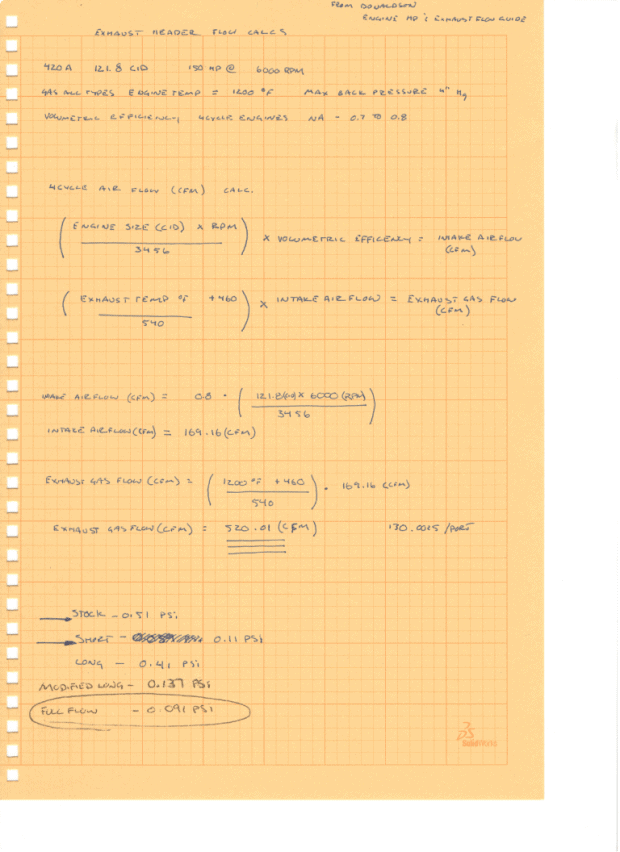 FROM DONALDSON
ENGINE HP & EXHAUST FLOW GUIDE
EXHAUST HEADER FLOW CALCS
420A 121.8 CID 150 HP @ 6000 RPM
GAS ALL TYPES ENGINE TEMP = 1200 °F MAX BACK PRESSURE 4" Hg
VOLUMETRIC EFFICIENCY 4CYCLE ENGINES NA - 0.7 TO 0.8
4CYCLE AIR FLOW (CFM) CALC.
( ENGINE SIZE (CID) X RPM / 3456 ) X VOLUMETRIC EFFICENCY = INTAKE AIRFLOW (CFM)
( EXHAUST TEMP °F +460 / 540 ) X INTAKE AIRFLOW = EXHAUST GAS FLOW (CFM)
INTAKE AIRFLOW (CFM) = 0.8 · ( 121.8 X 6000 (RPM) / 3456 )
INTAKE AIRFLOW (CFM) = 169.16 (CFM)
EXHAUST GAS FLOW (CFM) = ( 1200 °F +460 / 540 ) · 169.16 (CFM)
EXHAUST GAS FLOW (CFM) = 520.01 (CFM) 130.0025 /PORT
STOCK - 0.51 PSI
SHORT - 0.11 PSI
LONG - 0.41 PSI
MODIFIED LONG - 0.137 PSI
FULL FLOW - 0.091 PSI
SolidWorks